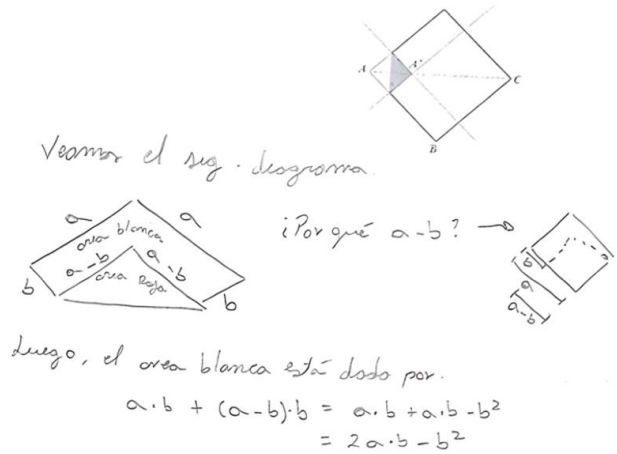 A A' C
B
Veamos el sig. diagrama.
a a
area blanca
a-b a-b
area Roja
b b
¿Por qué a-b?
b a
a-b
Luego, el area blanca está dado por.
a·b + (a-b)·b = a·b + a·b - b²
= 2a·b - b²